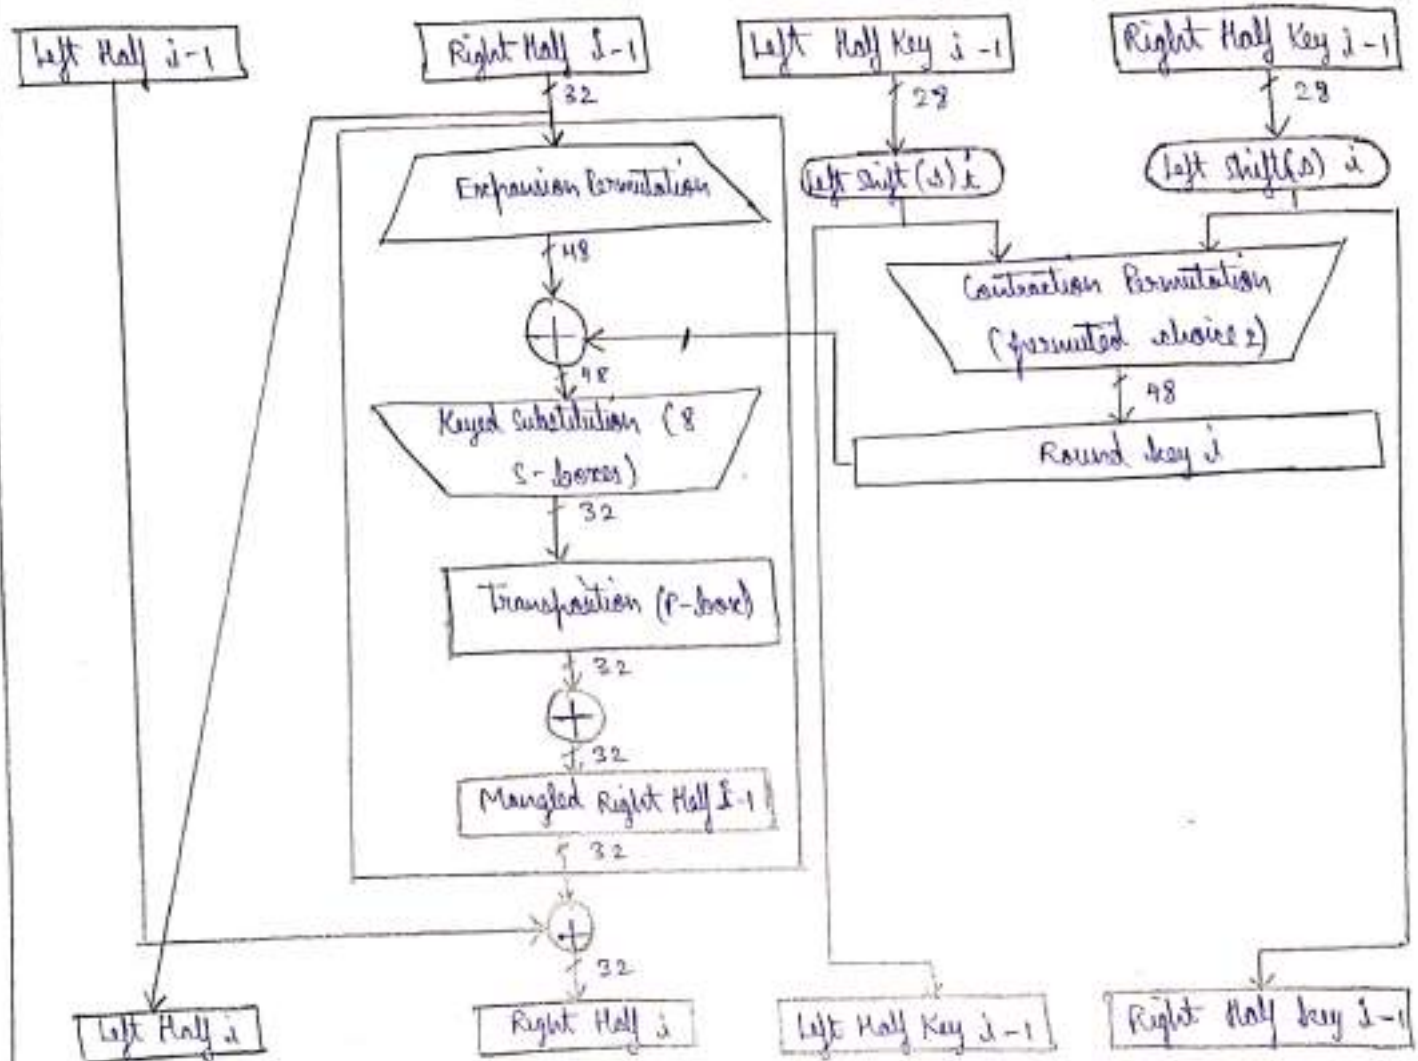 Left Half i-1
Right Half i-1
Left Half Key i-1
Right Half Key i-1
32
28
28
Expansion Permutation
Left Shift(s) i
Left Shift(s) i
48
Contraction Permutation
(permuted choice 2)
48
48
Keyed Substitution (8
S-boxes)
Round key i
32
Transposition (P-box)
32
32
Mangled Right Half i-1
32
32
Left Half i
Right Half i
Left Half Key i-1
Right Half key i-1